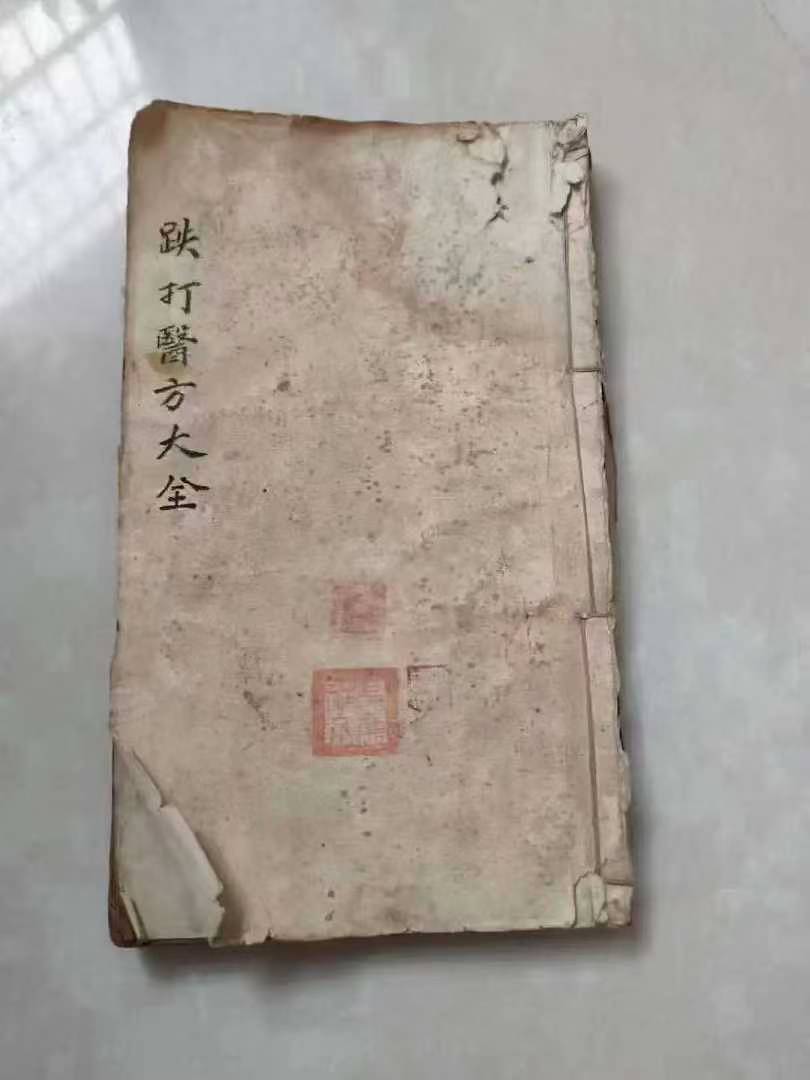 跌打醫方大全